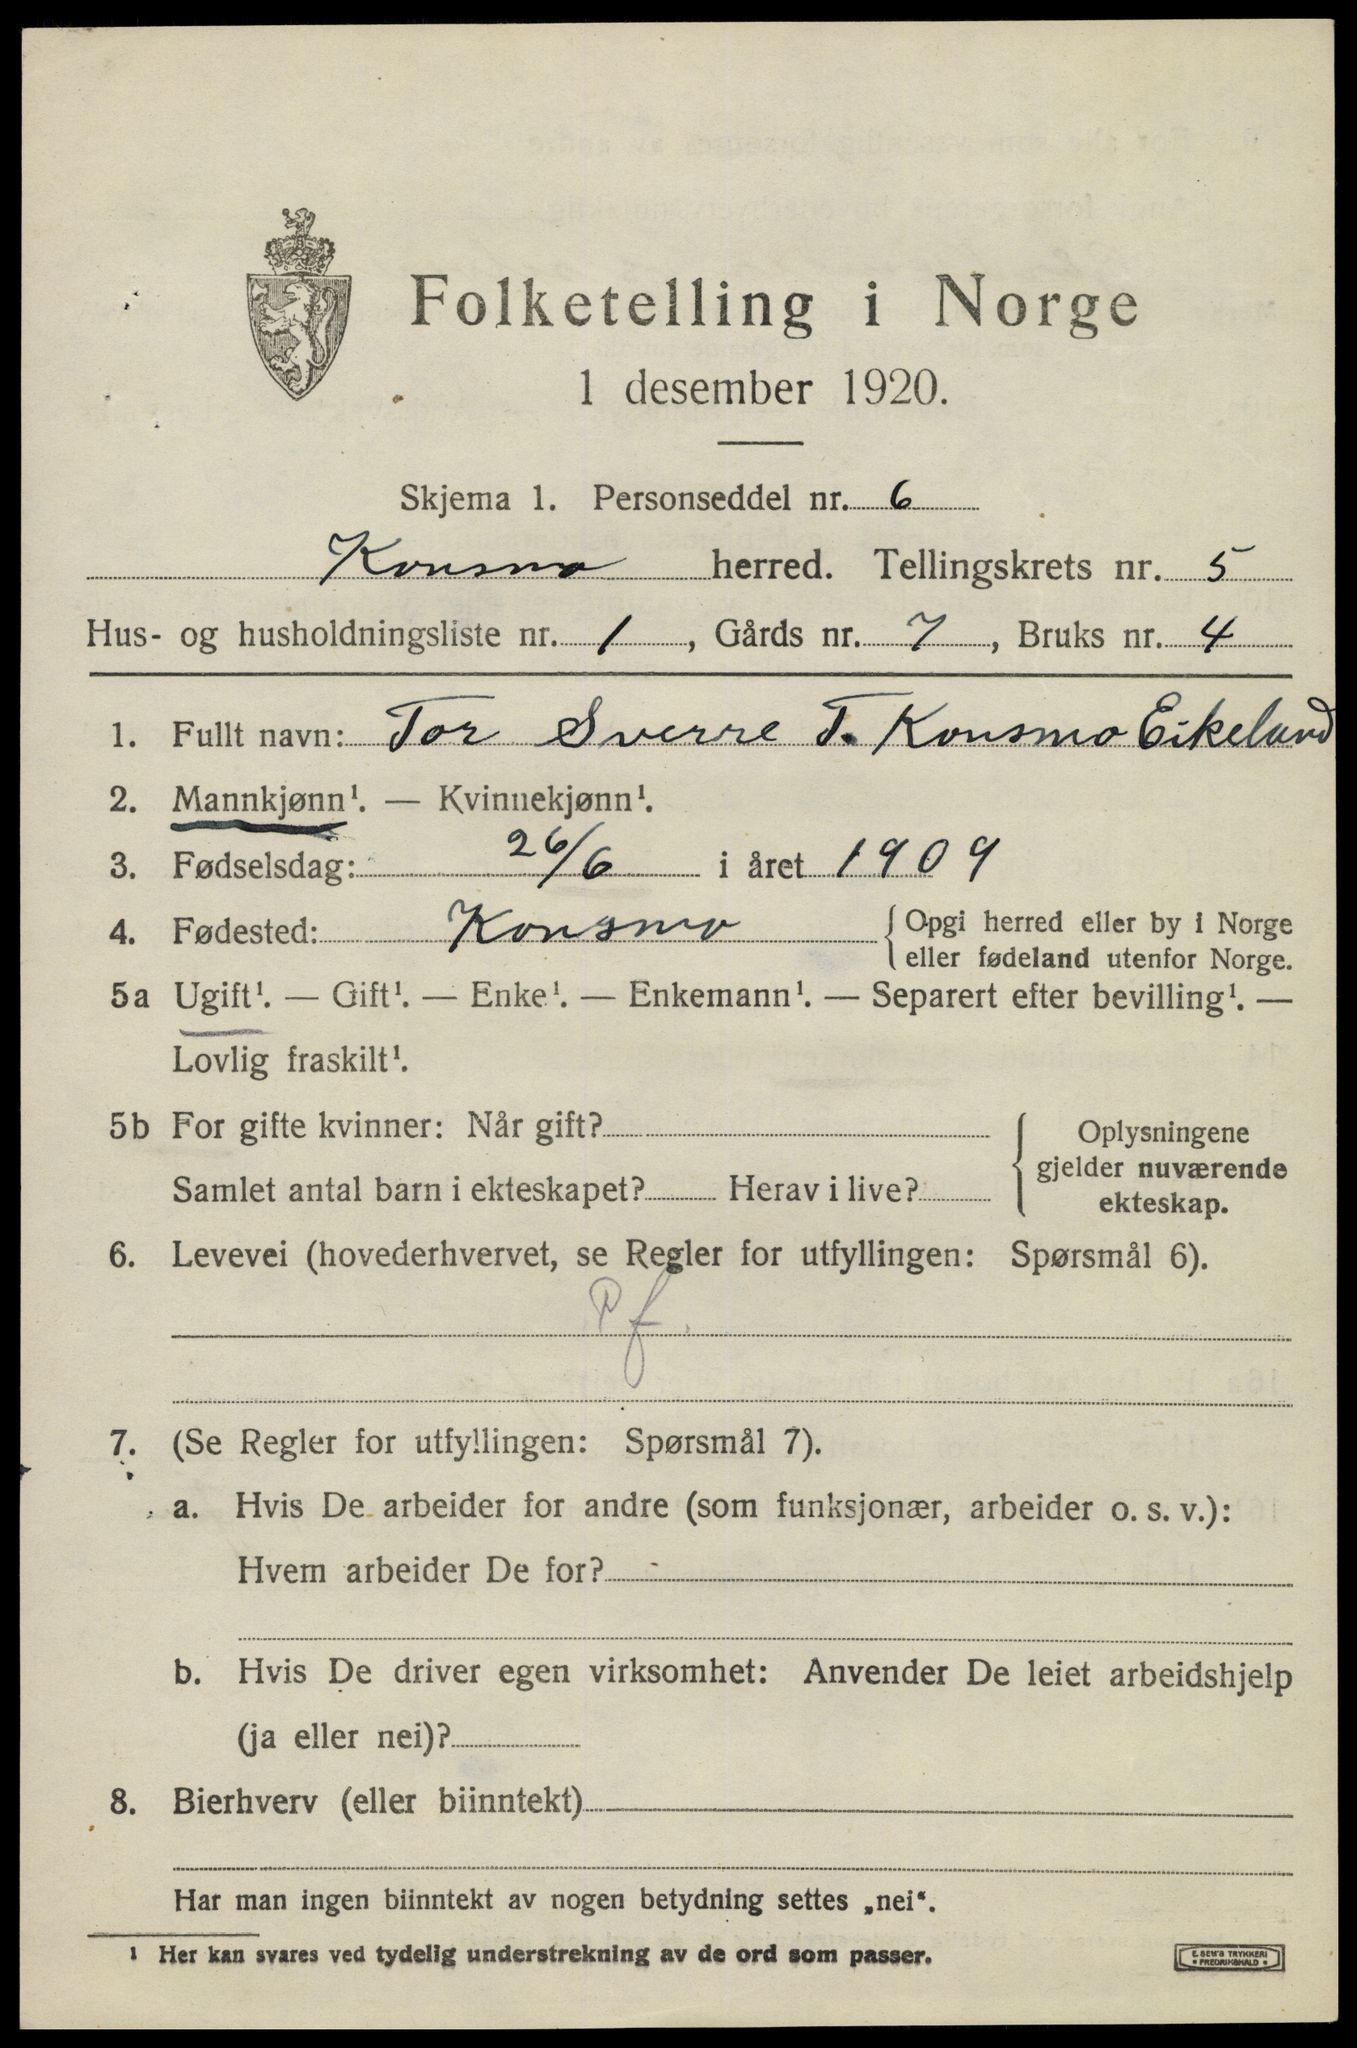 Folketelling i Norge
1 desember 1920.
Skjema 1. Personseddel nr. 6
Konsmo herred. Tellingskrets nr. 5
Hus- og husholdningsliste nr. 1, Gårds nr. 7, Bruks nr. 4
1. Fullt navn: Tor Sverre T. Konsmo Eikeland
2. Mannkjønn¹. — Kvinnekjønn¹.
3. Fødselsdag: 26/6 i året 1909
4. Fødested: Konsmo {Opgi herred eller by i Norge
eller fødeland utenfor Norge.
5a Ugift¹. — Gift¹. — Enke¹. — Enkemann¹. — Separert efter bevilling¹. —
Lovlig fraskilt¹.
5b For gifte kvinner: Når gift?
Samlet antal barn i ekteskapet? Herav i live?
Oplysningene
gjelder nuværende
ekteskap.
6. Levevei (hovederhvervet, se Regler for utfyllingen: Spørsmål 6).
Pf.
7. (Se Regler for utfyllingen: Spørsmål 7).
a. Hvis De arbeider for andre (som funksjonær, arbeider o. s. v.):
Hvem arbeider De for?
b. Hvis De driver egen virksomhet: Anvender De leiet arbeidshjelp
(ja eller nei)?
8. Bierhverv (eller biinntekt)
Har man ingen biinntekt av nogen betydning settes „nei“.
1 Her kan svares ved tydelig understrekning av de ord som passer.
E. SEM'S TRYKKERI
• FREDRIKSHALD •